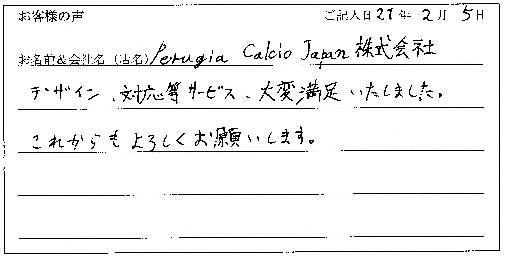 お客様の声 ご記入日 27年 2月 5日
お名前&会社名(店名) Perugia Calcio Japan 株式会社
デザイン、対応等サービス、大変満足いたしました。
これからもよろしくお願いします。